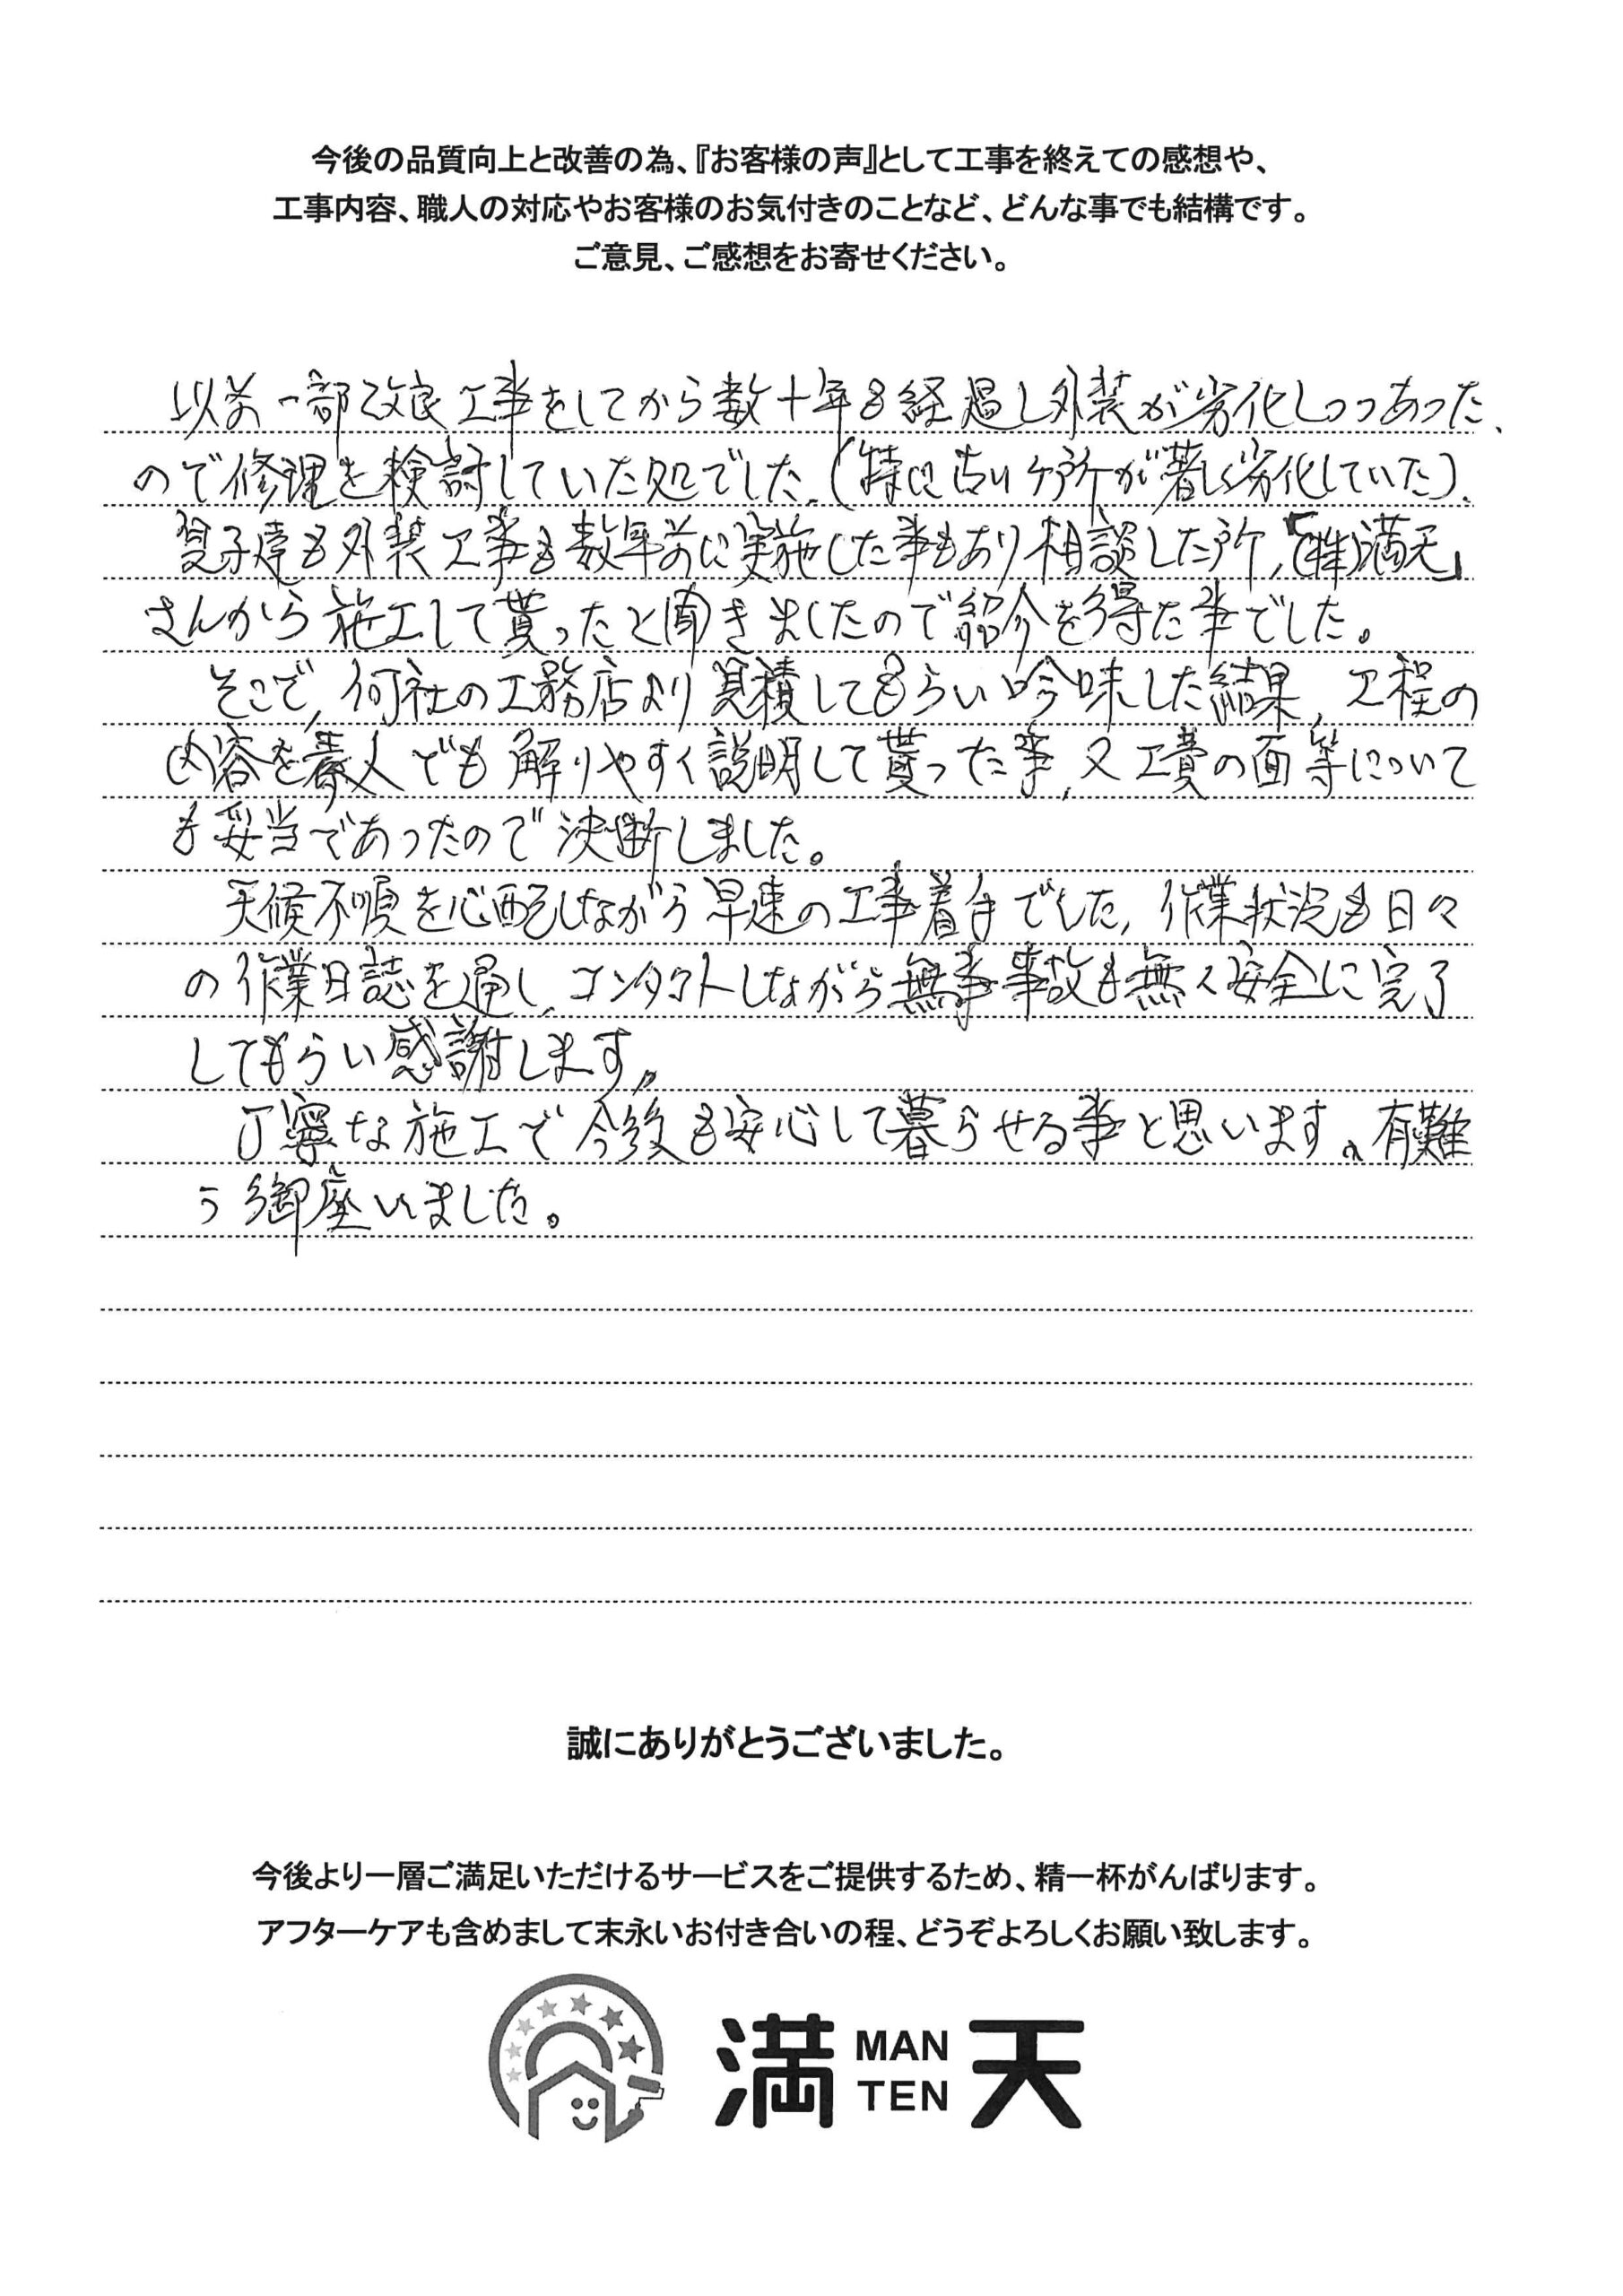 今後の品質向上と改善の為、『お客様の声』として工事を終えての感想や、
工事内容、職人の対応やお客様のお気付きのことなど、どんな事でも結構です。
ご意見、ご感想をお寄せください。
以前一部改良工事をしてから数十年も経過し外装が劣化しつつあった、
ので修理を検討していた処でした。(特に古いケ所が著しく劣化していた)、
息子達も外装工事も数年前に実施した事もあり相談した所、「(株)満天」
さんから施工して貰ったと聞きましたので紹介を得た事でした。
そこで、何社の工務店より見積してもらい吟味した結果、工程の
内容を素人でも解りやすく説明して貰った事、又工費の面等について
も妥当であったので決断しました。
天候不順を心配しながら早速の工事着手でした、作業状況も日々
の作業日誌を通し、コンタクトしながら無事事故も無く安全に完了
してもらい感謝します。
丁寧な施工で今後も安心して暮らせる事と思います。有難
う御座いました。
誠にありがとうございました。
今後より一層ご満足いただけるサービスをご提供するため、精一杯がんばります。
アフターケアも含めまして末永いお付き合いの程、どうぞよろしくお願い致します。
満 MAN TEN 天